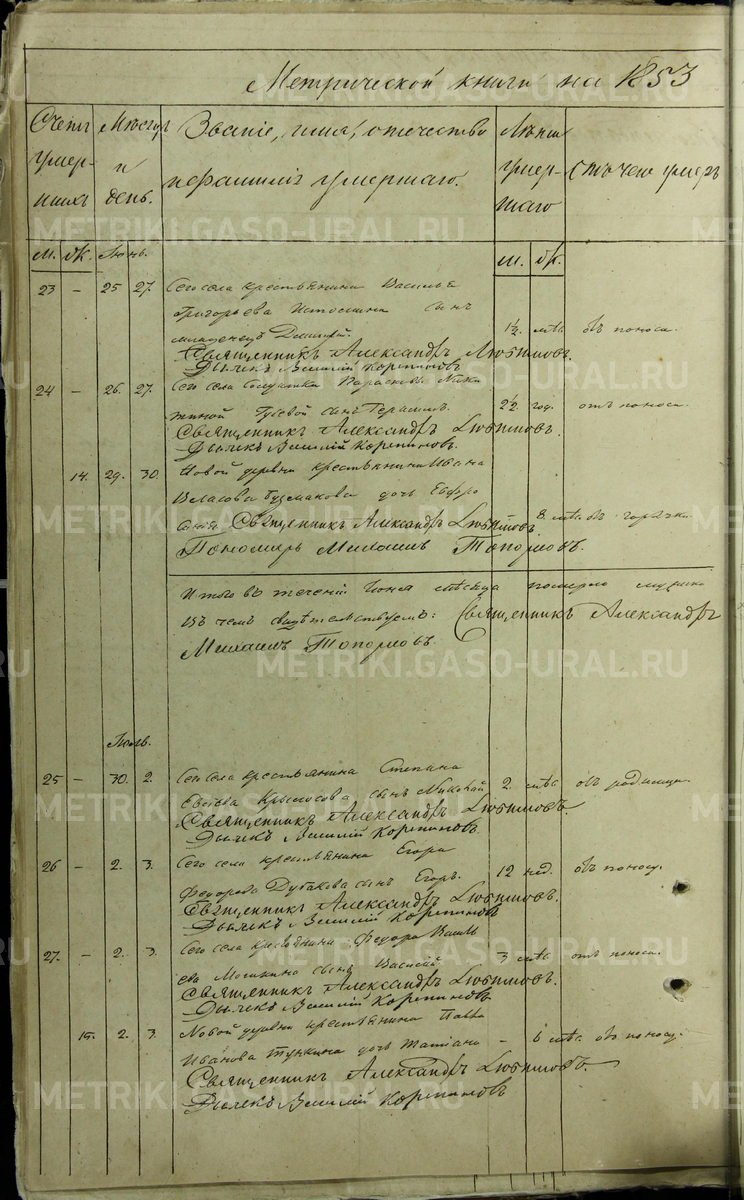 Метрической книги на 1853
Счетъ умер- шихъ
Мѣсяцъ и день.
Званіе, имя, отчество и фамилія умершаго.
Лѣта умер- шаго
Отъ чего умеръ
М. Ж. Іюнь. М. Ж.
23 — 25 27. Сего села крестьянина Василья
Григорьева сынъ
младенецъ Дмитрій. 1½ мѣс. отъ поноса.
Священникъ Александръ Любимовъ.
Дьячекъ Василій Корепановъ
24 — 26. 27. Сего села солдатки Парасковьи Ники
тиной сынъ Герасимъ. 2½ год. отъ поноса.
Священникъ Александръ Любимовъ.
Дьячекъ Василій Корепановъ.
14. 29. 30. Новой деревни крестьянина Ивана
Власова дочь Евфро
Священникъ Александръ Любимовъ. 8 мѣс. отъ горячки.
Пономарь Михаилъ Топорковъ.
Итого въ теченіи Іюня мѣсяца померло мужска
Въ чемъ свидѣтельствуемъ: Священникъ Александръ
Михаилъ Топорковъ.
Іюль.
25 — 30. 2. Сего села крестьянина Степана
сынъ Николай 2. мѣс. отъ родимца.
Священникъ Александръ Любимовъ.
Дьячекъ Василій Корепановъ.
26 — 2. 3. Сего села крестьянина Егора
Федорова сынъ Егоръ. 12 нед. отъ поноса.
Священникъ Александръ Любимовъ.
Дьячекъ Василій Корепановъ
27. — 2. 3. Сего села крестьянина Федора Василь
ева сынъ Василій 3 мѣс. отъ поноса.
Священникъ Александръ Любимовъ.
Дьячекъ Василій Корепановъ
15. 2. 3. Новой деревни крестьянина Павла
Иванова дочь Татіана — 6 мѣс. отъ поноса.
Священникъ Александръ Любимовъ.
Дьячекъ Василій Корепановъ
METRIKI.GASO-URAL.RU